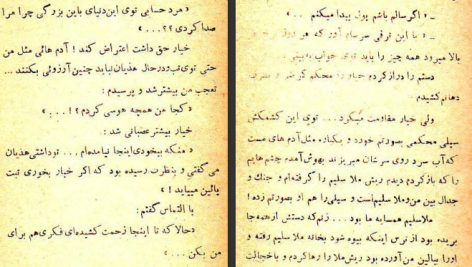 «مرد حسابی توی این دنیای باین بزرگی چرا مرا
صدا کردی؟؟...»
خیار حق داشت اعتراض کند! آدم هائی مثل من
حتی توی تب و در حال هذیان نباید چنین آرزوئی بکنند...
تعجب من بیشتر شد و پرسیدم:
«کجا من همچه هوسی کردم؟!...»
خیار بیشتر عصبانی شد:
«منکه بیخودی اینجا نیامده‌ام... تو داشتی هذیان
می گفتی و بنظرت رسیده بود که اگر خیار بخوری تبت
پائین میآید!»
با التماس گفتم:
«حالا که تا اینجا زحمت کشیده‌ای فکری هم برای
من بکن...»
- «اگر سالم باشم پول پیدا میکنم...»
- «با این ترقی سرسام آور که هر روز
بالا میرود همه چیز را باید توی خواب به‌بینی
دستم را دراز کردم خیار را محکم گرفتم و بطرف
دهانم کشیدم
ولی خیار مقاومت میکرد... توی این کشمکش
سیلی محکمی بصورتم خورد و یکباره مثل آدم های مست
که آب سرد روی سرشان میریزند بهوش آمدم چشم‌هایم
که باز کردم دیدم ریش ملا سلیم را گرفته‌ام و جنگ و
جدال بین من و ملا سلیم است و سیلی را هم او بصورتم زده!
ملاسلیم همسایه ما بود... زنم که دستش از همه جا
بریده بود از ترس اینکه بیوه شود بخانه ملا سلیم رفته و
اورا ببالین من آورده بود ریش ملا را رها کردم و با خجالت